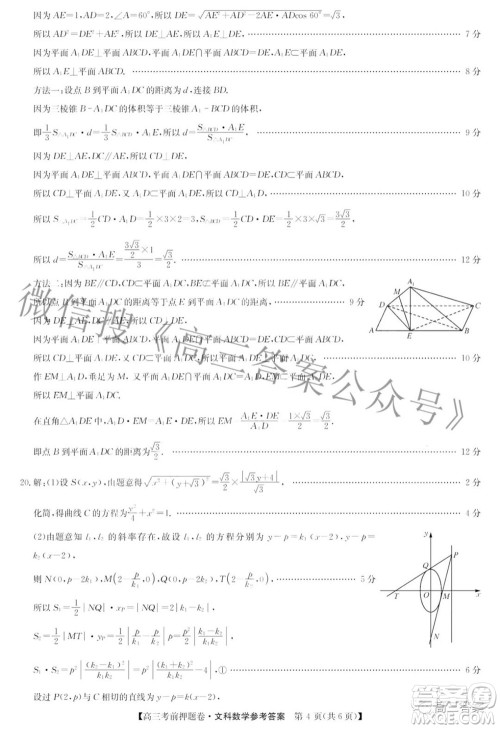 因为AE=1,AD=2,∠A=60°,所以DE=√(AE²+AD²−2AE·ADcos 60°)=√3,
所以AD²=DE²+AE²,所以DE⊥AE,所以DE⊥A₁E. 7分
因为平面A₁DE⊥平面ABCD,平面A₁DE∩平面ABCD=DE,A₁E⊂平面A₁DE,
所以A₁E⊥平面ABCD. 8分
方法一:设点B到平面A₁DC的距离为d,连接BD.
因为三棱锥B-A₁DC的体积等于三棱锥A₁-BCD的体积,
即1/3 S△A₁DC·d=1/3 S△BCD·A₁E,所以d=S△BCD·A₁E/S△A₁DC. 9分
因为DE⊥AE,AE∥DC,所以DE⊥DC.
因为平面A₁DE⊥平面ABCD,平面A₁DE∩平面ABCD=DE,CD⊂平面BCDE,
所以CD⊥平面A₁DE,所以CD⊥A₁D. 10分
所以S△A₁DC=1/2 CD·A₁D=1/2×2×3=3,S△BCD=1/2 CD·DE=1/2×3×√3=3√3/2,
所以d=S△BCD·A₁E/S△A₁DC=(3√3/2×1)/3=√3/2. 12分
方法二:因为BE∥CD,BE⊄平面A₁DC,CD⊂平面A₁DC,所以BE∥平面A₁DC,
所以点B到平面A₁DC的距离等于点E到平面A₁DC的距离. 9分
因为DE⊥AE,AE∥DC,所以DE⊥DC.
因为平面A₁DE⊥平面ABCD,平面A₁DE∩平面ABCD=DE,
所以CD⊥平面A₁DE. 10分
作EM⊥A₁D,垂足为M,又CD⊥EM,A₁D∩CD=D,
所以EM⊥平面A₁DC.
在直角△A₁DE中,A₁D·EM=A₁E·DE,所以EM=A₁E·DE/A₁D=1×√3/2=√3/2.
即点B到平面A₁DC的距离为√3/2. 12分
A₁
D
C
M
A
E
B
20.解:(1)设S(x,y),由题意得√(x²+(y+√3)²)=√3/2×|√3y+4|/√3. 2分
化简,得曲线C的方程为y²/4+x²=1. 4分
(2)由题意知l₁,l₂的斜率存在,设l₁,l₂的方程分别为y−p=k₁(x−2),y−p=
k₂(x−2),
则N(0,p−2k₂),M(2−p/k₂,0),Q(0,p−2k₁),T(2−p/k₁,0) 5分
所以S₁=1/2|NQ|·x_P=1/2|NQ|·2=|NQ|,
S₂=1/2|MT|·y_P=1/2|p/k₁−p/k₂|·|p|,
S₁·S₂=p²|(k₁−k₂)²/k₁k₂|=p²|(k₁+k₂)²/k₁k₂−4|,① 6分
设过P(2,p)与C相切的直线方程为y−p=k(x−2),
y
P
Q
T
O
M
x
N
【高三考前押题卷·文科数学参考答案 第4页(共6页)】
微信搜《高三答案公众号》